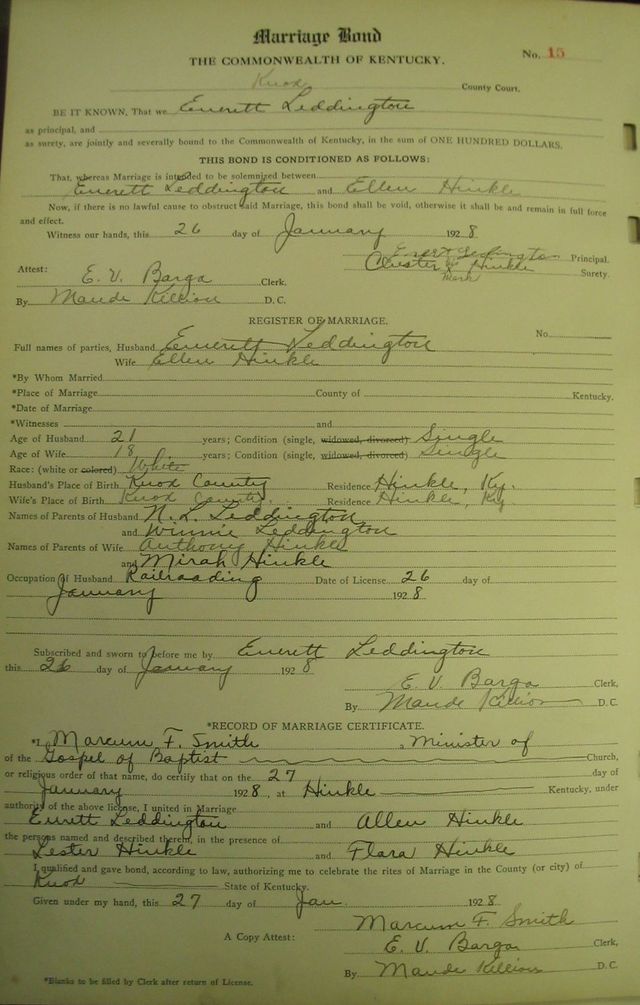 Marriage Bond
No. 15
THE COMMONWEALTH OF KENTUCKY.
Knox County Court.
BE IT KNOWN, That we Everett Leddington
as principal, and
as surety, are jointly and severally bound to the Commonwealth of Kentucky, in the sum of ONE HUNDRED DOLLARS.
THIS BOND IS CONDITIONED AS FOLLOWS:
That, whereas Marriage is intended to be solemnized between
Everett Leddington and Ellen Hinkle
Now, if there is no lawful cause to obstruct said Marriage, this bond shall be void, otherwise it shall be and remain in full force
and effect.
Witness our hands, this 26 day of January 1928
Everett Leddington Principal.
Attest: Hinkle Surety.
mark
E. V. Barga Clerk.
By Maude Killion D. C.
REGISTER OF MARRIAGE.
No.
Full names of parties, Husband Everett Leddington
Wife Ellen Hinkle
*By Whom Married
*Place of Marriage County of Kentucky.
*Date of Marriage
*Witnesses and
Age of Husband 21 years; Condition (single, widowed, divorced) Single
Age of Wife 18 years; Condition (single, widowed, divorced) Single
Race: (white or colored) White
Husband's Place of Birth Knox County Residence Hinkle, Ky.
Wife's Place of Birth Knox County. Residence Hinkle, Ky.
Names of Parents of Husband N. L. Leddington
and Winnie Leddington
Names of Parents of Wife Anthony Hinkle
and Mirah Hinkle
Occupation of Husband Railroading Date of License 26 day of
January 1928
Subscribed and sworn to before me by Everett Leddington
this 26 day of January 1928
E. V. Barga Clerk,
By Maude Killion D. C.
*RECORD OF MARRIAGE CERTIFICATE.
*I, Marcum F. Smith, Minister of
of the Gospel of Baptist Church,
or religious order of that name, do certify that on the 27 day of
January 1928, at Hinkle Kentucky, under
authority of the above license, I united in Marriage
Evrett Leddington and Allen Hinkle
the persons named and described therein, in the presence of
Lester Hinkle and Flara Hinkle
I qualified and gave bond, according to law, authorizing me to celebrate the rites of Marriage in the County (or city) of
Knox State of Kentucky.
Given under my hand, this 27 day of Jan. 1928
Marcum F. Smith
A Copy Attest: E. V. Barga Clerk,
By Maude Killion D. C.
*Blanks to be filled by Clerk after return of License.